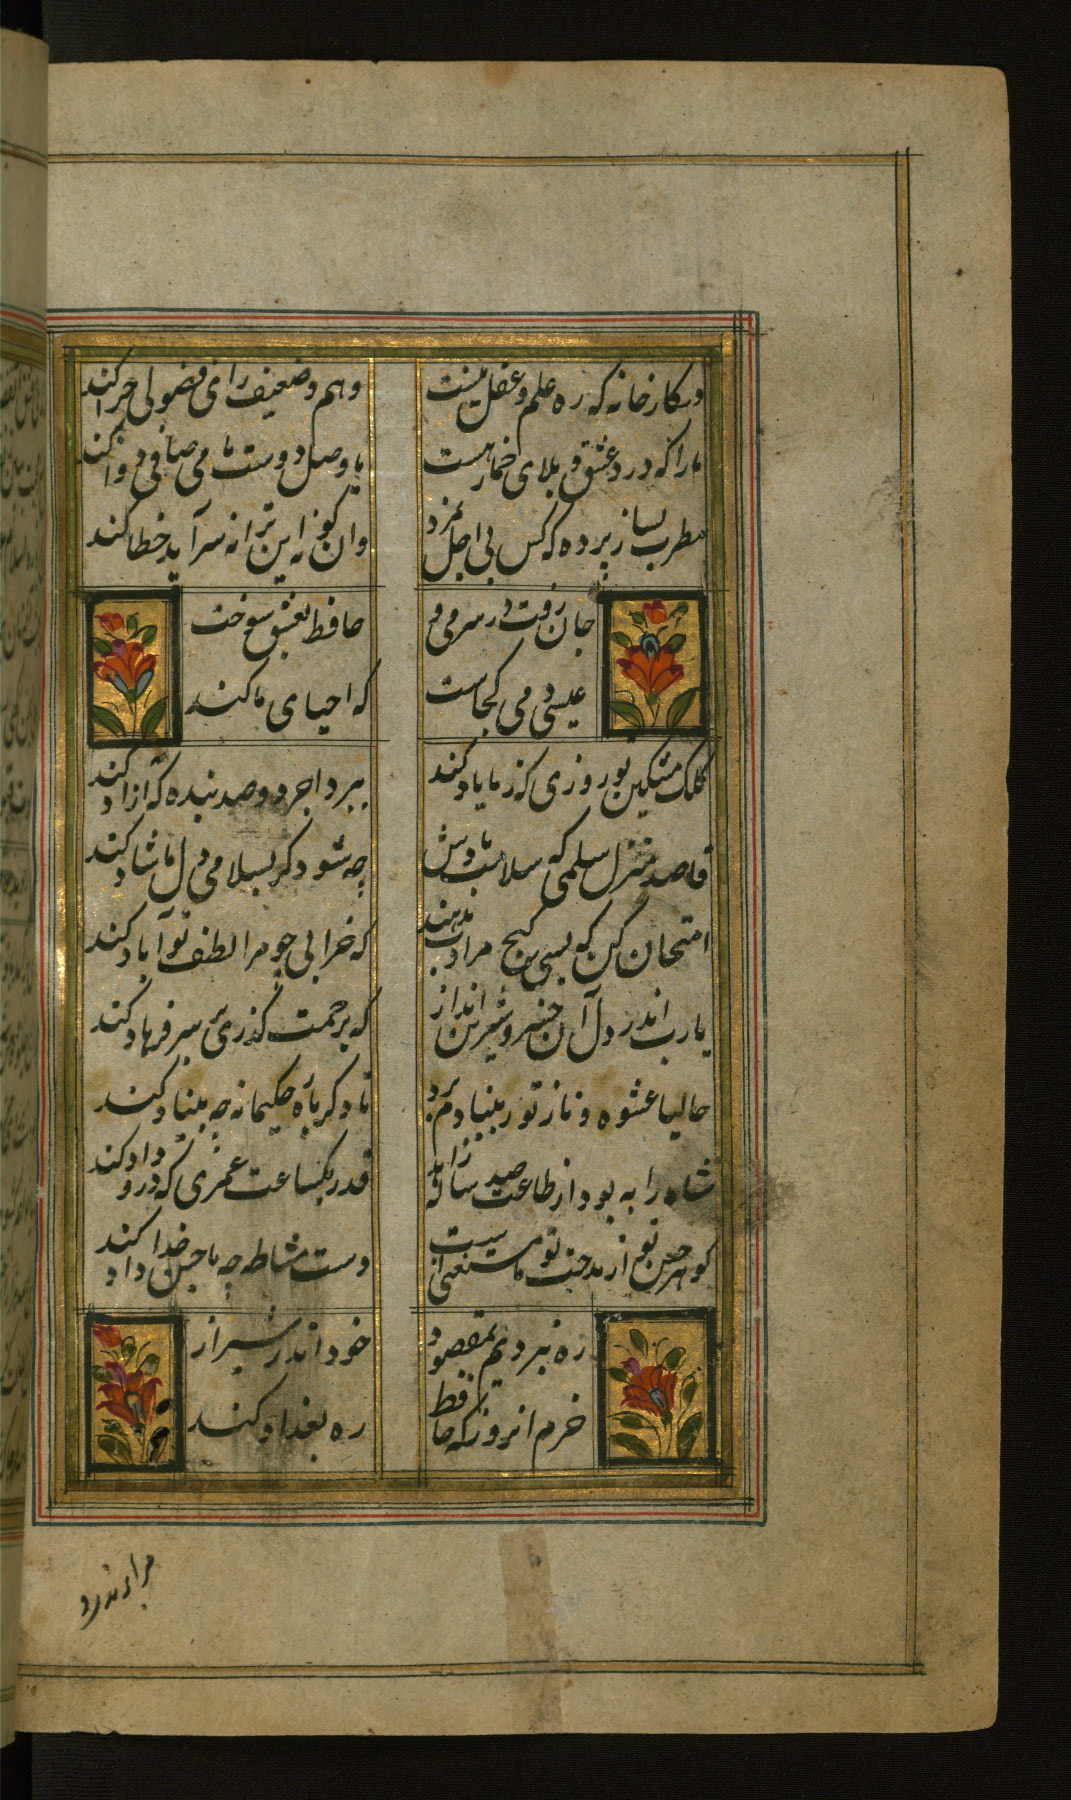 در کارخانه که ره علم و عقل نیست
وهم وضعیف رای فضولی چرا کند
ما را که درد عشق و بلای خمار هست
یا وصل دوست یا می صافی دوا کند
مطرب بساز پرده که کس بی اجل نمرد
وان کو نه این ترانه سرآید خطا کند
جان رفت در سر می و
حافظ بعشق سوخت
عیسی دمی کجاست
که احیای ما کند
کلک مشکین تو روزی که ز ما یاد کند
ببرد اجر دو صد بنده که آزاد کند
قاصد منزل سلمی که سلامت بادش
چه شود گر بسلامی دل ما شاد کند
امتحان کن که بسی گنج مرادت بدهند
که خرابی چو مرا لطف تو آباد کند
یارب اندر دل آن خسرو شیرین انداز
که برحمت گذری بر سر فرهاد کند
حالیا عشوه و ناز تو ز بنیادم برد
تا دگر باره حکیمانه چه بنیاد کند
شاه را به بود از طاعت صد ساله زاهد
قدر یکساعت عمری که درو داد کند
گوهر حسن تو از مدحت تو ما مستغنی است
دست مشاطه چه با حسن خداداد کند
ره نبردیم بمقصود
خود اندر شیراز
خرم انروز که حافظ
ره بغداد کند